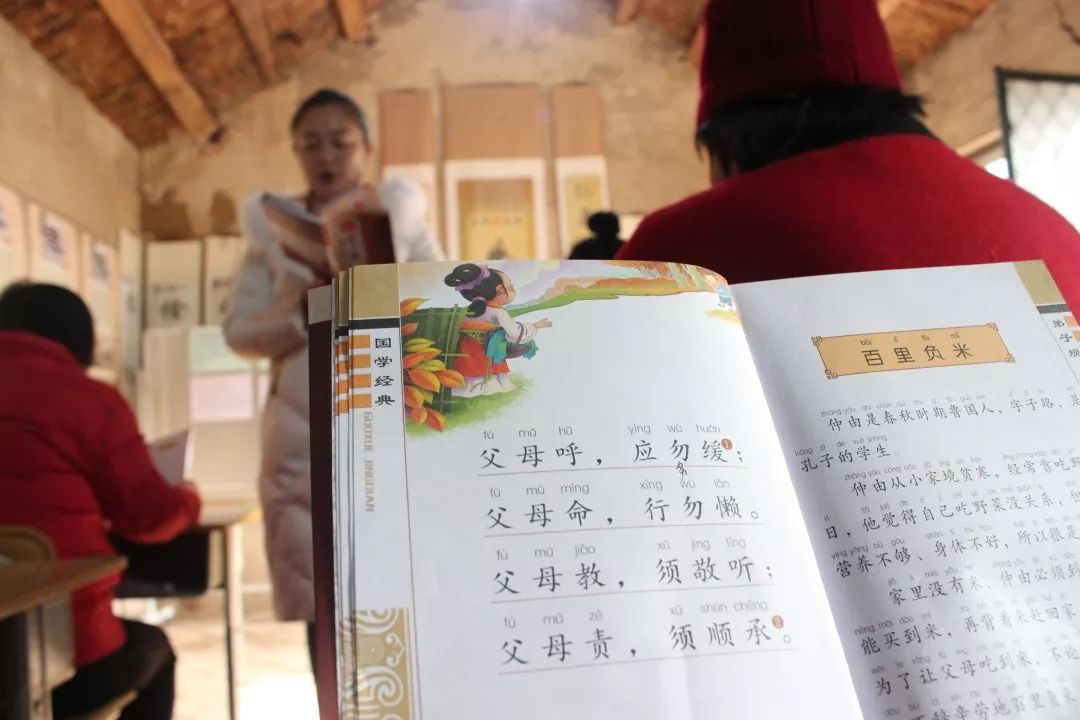 国学经典
GUOXUE JINGDIAN
fù mǔ hū yìng wù huǎn
父母呼，应勿缓❶；
fù mǔ mìng xíng wù lǎn
父母命，行勿懒。
fù mǔ jiào xū jìng tīng
父母教，须敬听；
fù mǔ zé xū shùn chéng
父母责，须顺承❷。
弟子规
bǎi lǐ fù mǐ
百里负米
仲由是春秋时期鲁国人，字子路，是
kǒng zǐ de xué shēng
孔子的学生。
仲由从小家境贫寒，经常食野
日，他觉得自己吃野菜没关系，但
营养不够、身体不好，所以很是
家里没有米，仲由必须到
néng mǎi dào mǐ
能买到米，再背着米赶回家
为了让父母吃到米，不论
辛劳地百里负米